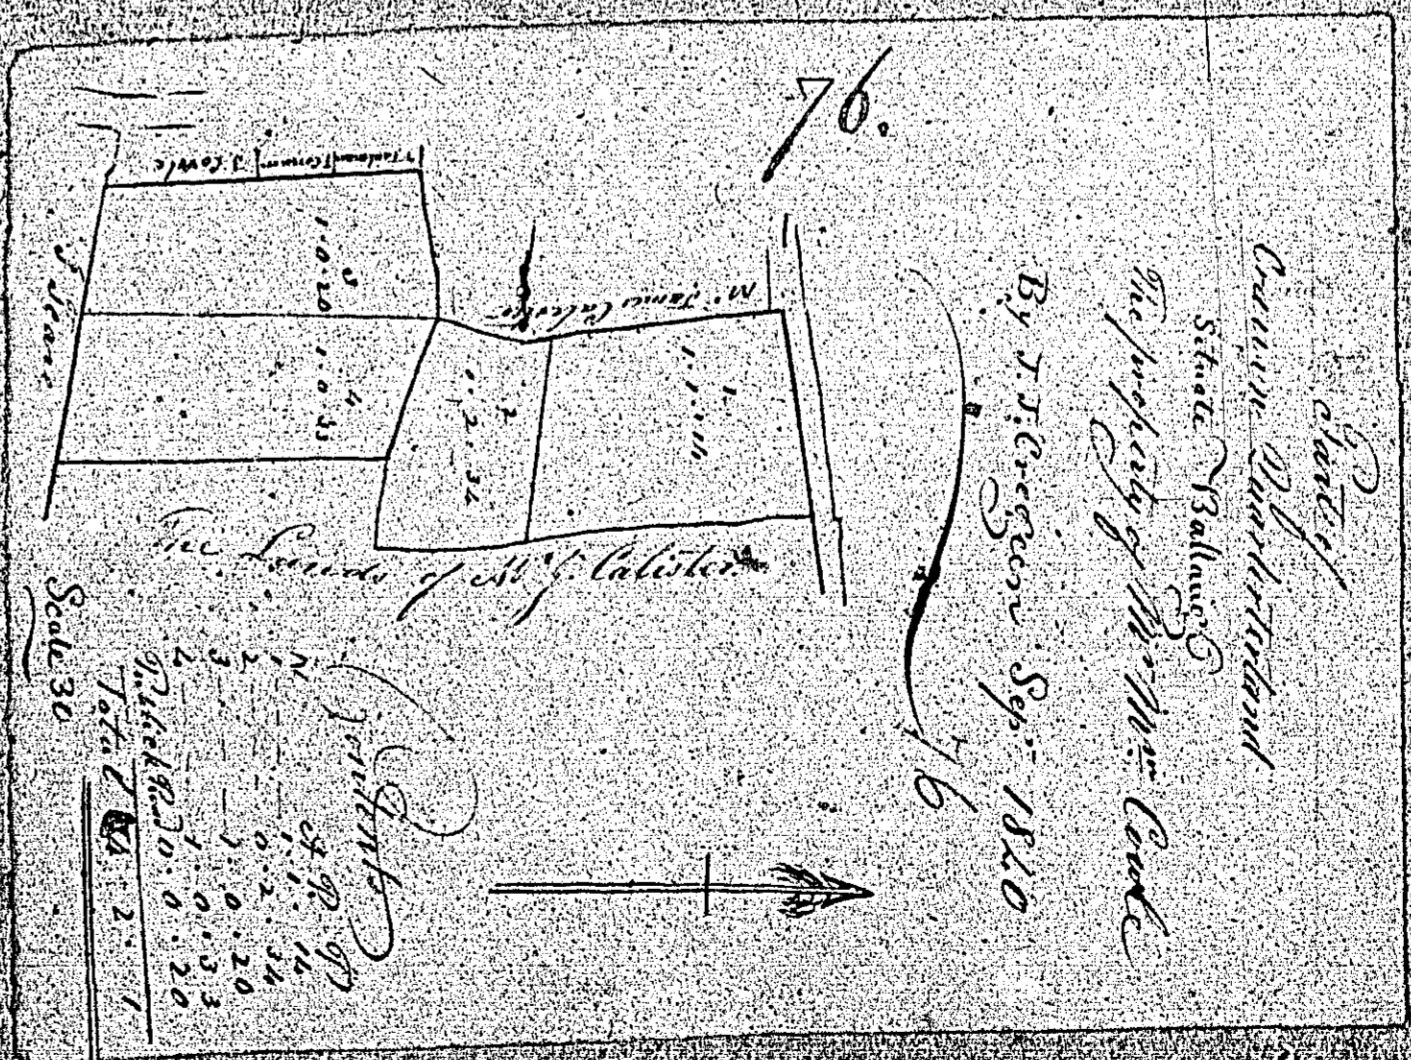 76.
Part of
Quarterland
Situate Ballaugh
The property of Mr. Wm. Cowle
By J. J. Creggeen Sepr. 1840
76
Mr. James Calister
1
1.1.14
2
0.2.34
3
1.0.20
4
1.0.33
J. Cowle
J. Kean
The Lands of Mr. J. Calister
Contents
N A R P
1 1. 1. 14
2 0. 2. 34
3 1. 0. 20
4 1. 0. 33
0. 0. 20
Total 4. 2. 1
Scale 30